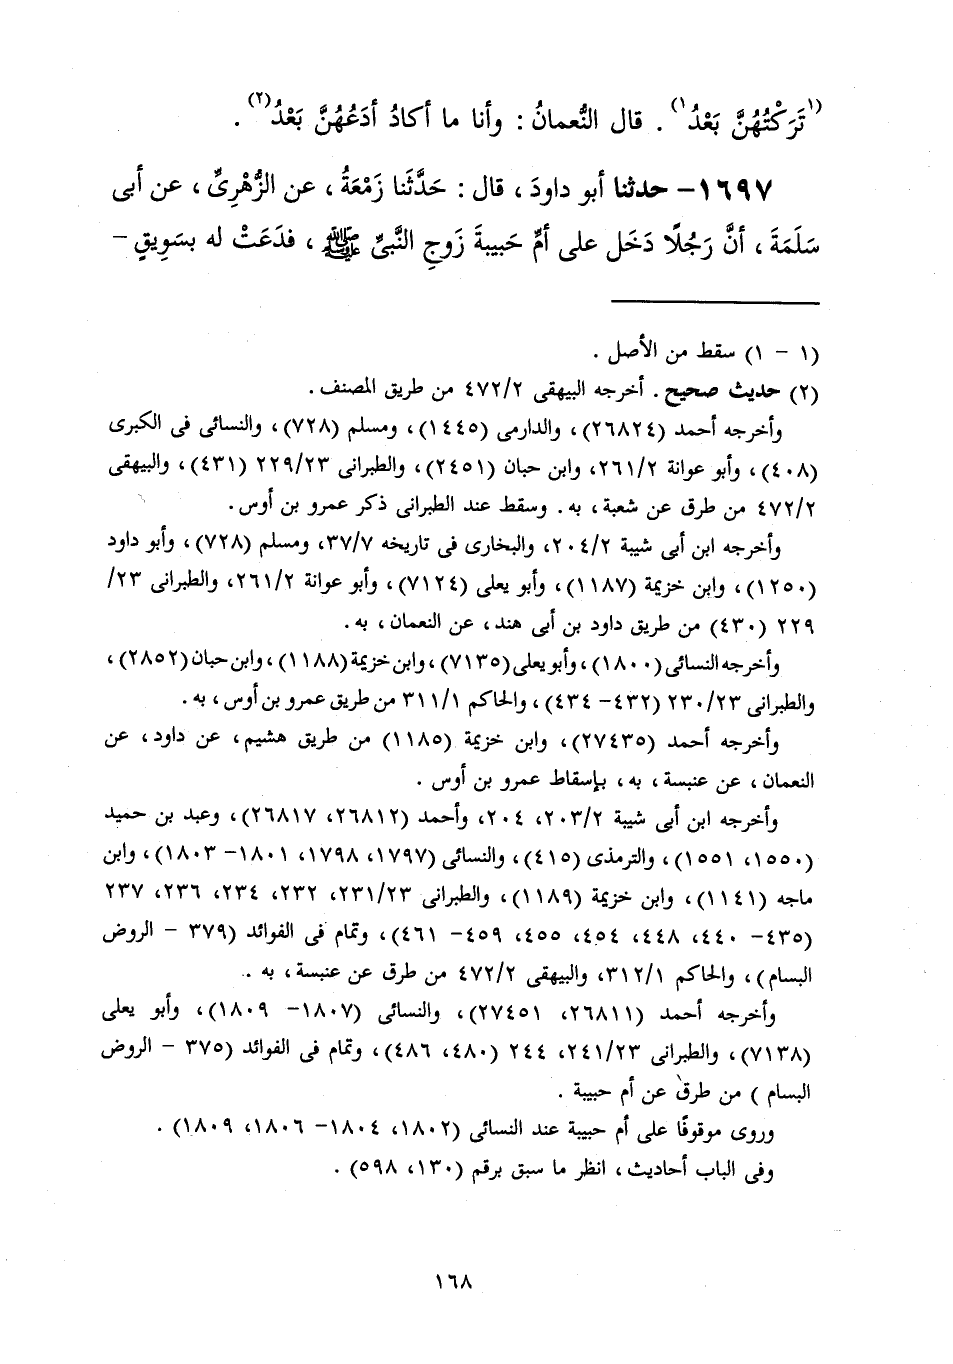 (١تَرَكْتُهُنَّ بَعْدُ١) . قال النُّعمانُ : وأنا ما أكادُ أدَعُهُنَّ بَعْدُ(٢) .
١٦٩٧- حدثنا أبو داودَ ، قال : حَدَّثَنا زَمْعَةُ ، عن الزُّهْرِىِّ ، عن أبى
سَلَمَةَ ، أنَّ رَجُلًا دَخَل على أمِّ حَبيبةَ زَوجِ النَّبىِّ ﷺ ، فدَعَتْ له بسَوِيقٍ -
(١ - ١) سقط من الأصل .
(٢) حديث صحيح . أخرجه البيهقى ٤٧٢/٢ من طريق المصنف .
وأخرجه أحمد (٢٦٨٢٤) ، والدارمى (١٤٤٥) ، ومسلم (٧٢٨) ، والنسائى فى الكبرى
(٤٠٨) ، وأبو عوانة ٢٦١/٢، وابن حبان (٢٤٥١) ، والطبرانى ٢٢٩/٢٣ (٤٣١) ، والبيهقى
٤٧٢/٢ من طرق عن شعبة ، به . وسقط عند الطبرانى ذكر عمرو بن أوس .
وأخرجه ابن أبى شيبة ٢٠٤/٢، والبخارى فى تاريخه ٣٧/٧، ومسلم (٧٢٨) ، وأبو داود
(١٢٥٠) ، وابن خزيمة (١١٨٧) ، وأبو يعلى (٧١٢٤) ، وأبو عوانة ٢٦١/٢، والطبرانى ٢٣/
٢٢٩ (٤٣٠) من طريق داود بن أبى هند ، عن النعمان ، به .
وأخرجه النسائى (١٨٠٠) ، وأبو يعلى (٧١٣٥) ، وابن خزيمة (١١٨٨) ، وابن حبان (٢٨٥٢) ،
والطبرانى ٢٣٠/٢٣ (٤٣٢- ٤٣٤) ، والحاكم ٣١١/١ من طريق عمرو بن أوس ، به .
وأخرجه أحمد (٢٧٤٣٥) ، وابن خزيمة (١١٨٥) من طريق هشيم ، عن داود ، عن
النعمان ، عن عنبسة ، به ، بإسقاط عمرو بن أوس .
وأخرجه ابن أبى شيبة ٢٠٣/٢، ٢٠٤، وأحمد (٢٦٨١٢، ٢٦٨١٧) ، وعبد بن حميد
(١٥٥٠، ١٥٥١) ، والترمذى (٤١٥) ، والنسائى (١٧٩٧، ١٧٩٨، ١٨٠١- ١٨٠٣) ، وابن
ماجه (١١٤١) ، وابن خزيمة (١١٨٩) ، والطبرانى ٢٣١/٢٣، ٢٣٢، ٢٣٤، ٢٣٦، ٢٣٧
(٤٣٥- ٤٤٠، ٤٤٨، ٤٥٤، ٤٥٥، ٤٥٩- ٤٦١) ، وتمام فى الفوائد (٣٧٩ - الروض
البسام) ، والحاكم ٣١٢/١، والبيهقى ٤٧٢/٢ من طرق عن عنبسة ، به .
وأخرجه أحمد (٢٦٨١١، ٢٧٤٥١) ، والنسائى (١٨٠٧- ١٨٠٩) ، وأبو يعلى
(٧١٣٨) ، والطبرانى ٢٤١/٢٣، ٢٤٤ (٤٨٠، ٤٨٦) ، وتمام فى الفوائد (٣٧٥ - الروض
البسام ) من طرق عن أم حبيبة .
وروى موقوفًا على أم حبيبة عند النسائى (١٨٠٢، ١٨٠٤- ١٨٠٦، ١٨٠٩) .
وفى الباب أحاديث ، انظر ما سبق برقم (١٣٠، ٥٩٨) .
١٦٨